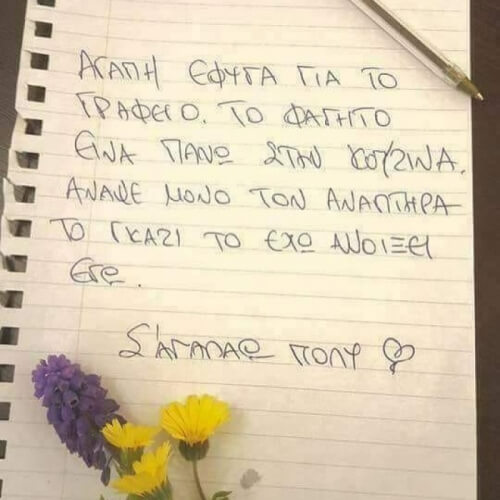 ΑΓΑΠΗ ΕΦΥΓΑ ΓΙΑ ΤΟ
ΓΡΑΦΕΙΟ. ΤΟ ΦΑΓΗΤΟ
ΕΙΝΑ ΠΑΝΩ ΣΤΗΝ ΚΟΥΖΙΝΑ.
ΑΝΑΨΕ ΜΟΝΟ ΤΟΝ ΑΝΑΠΤΗΡΑ
ΤΟ ΓΚΑΖΙ ΤΟ ΕΧΩ ΑΝΟΙΞΕΙ
ΕΓΩ.
Σ'ΑΓΑΠΑΩ ΠΟΛΥ